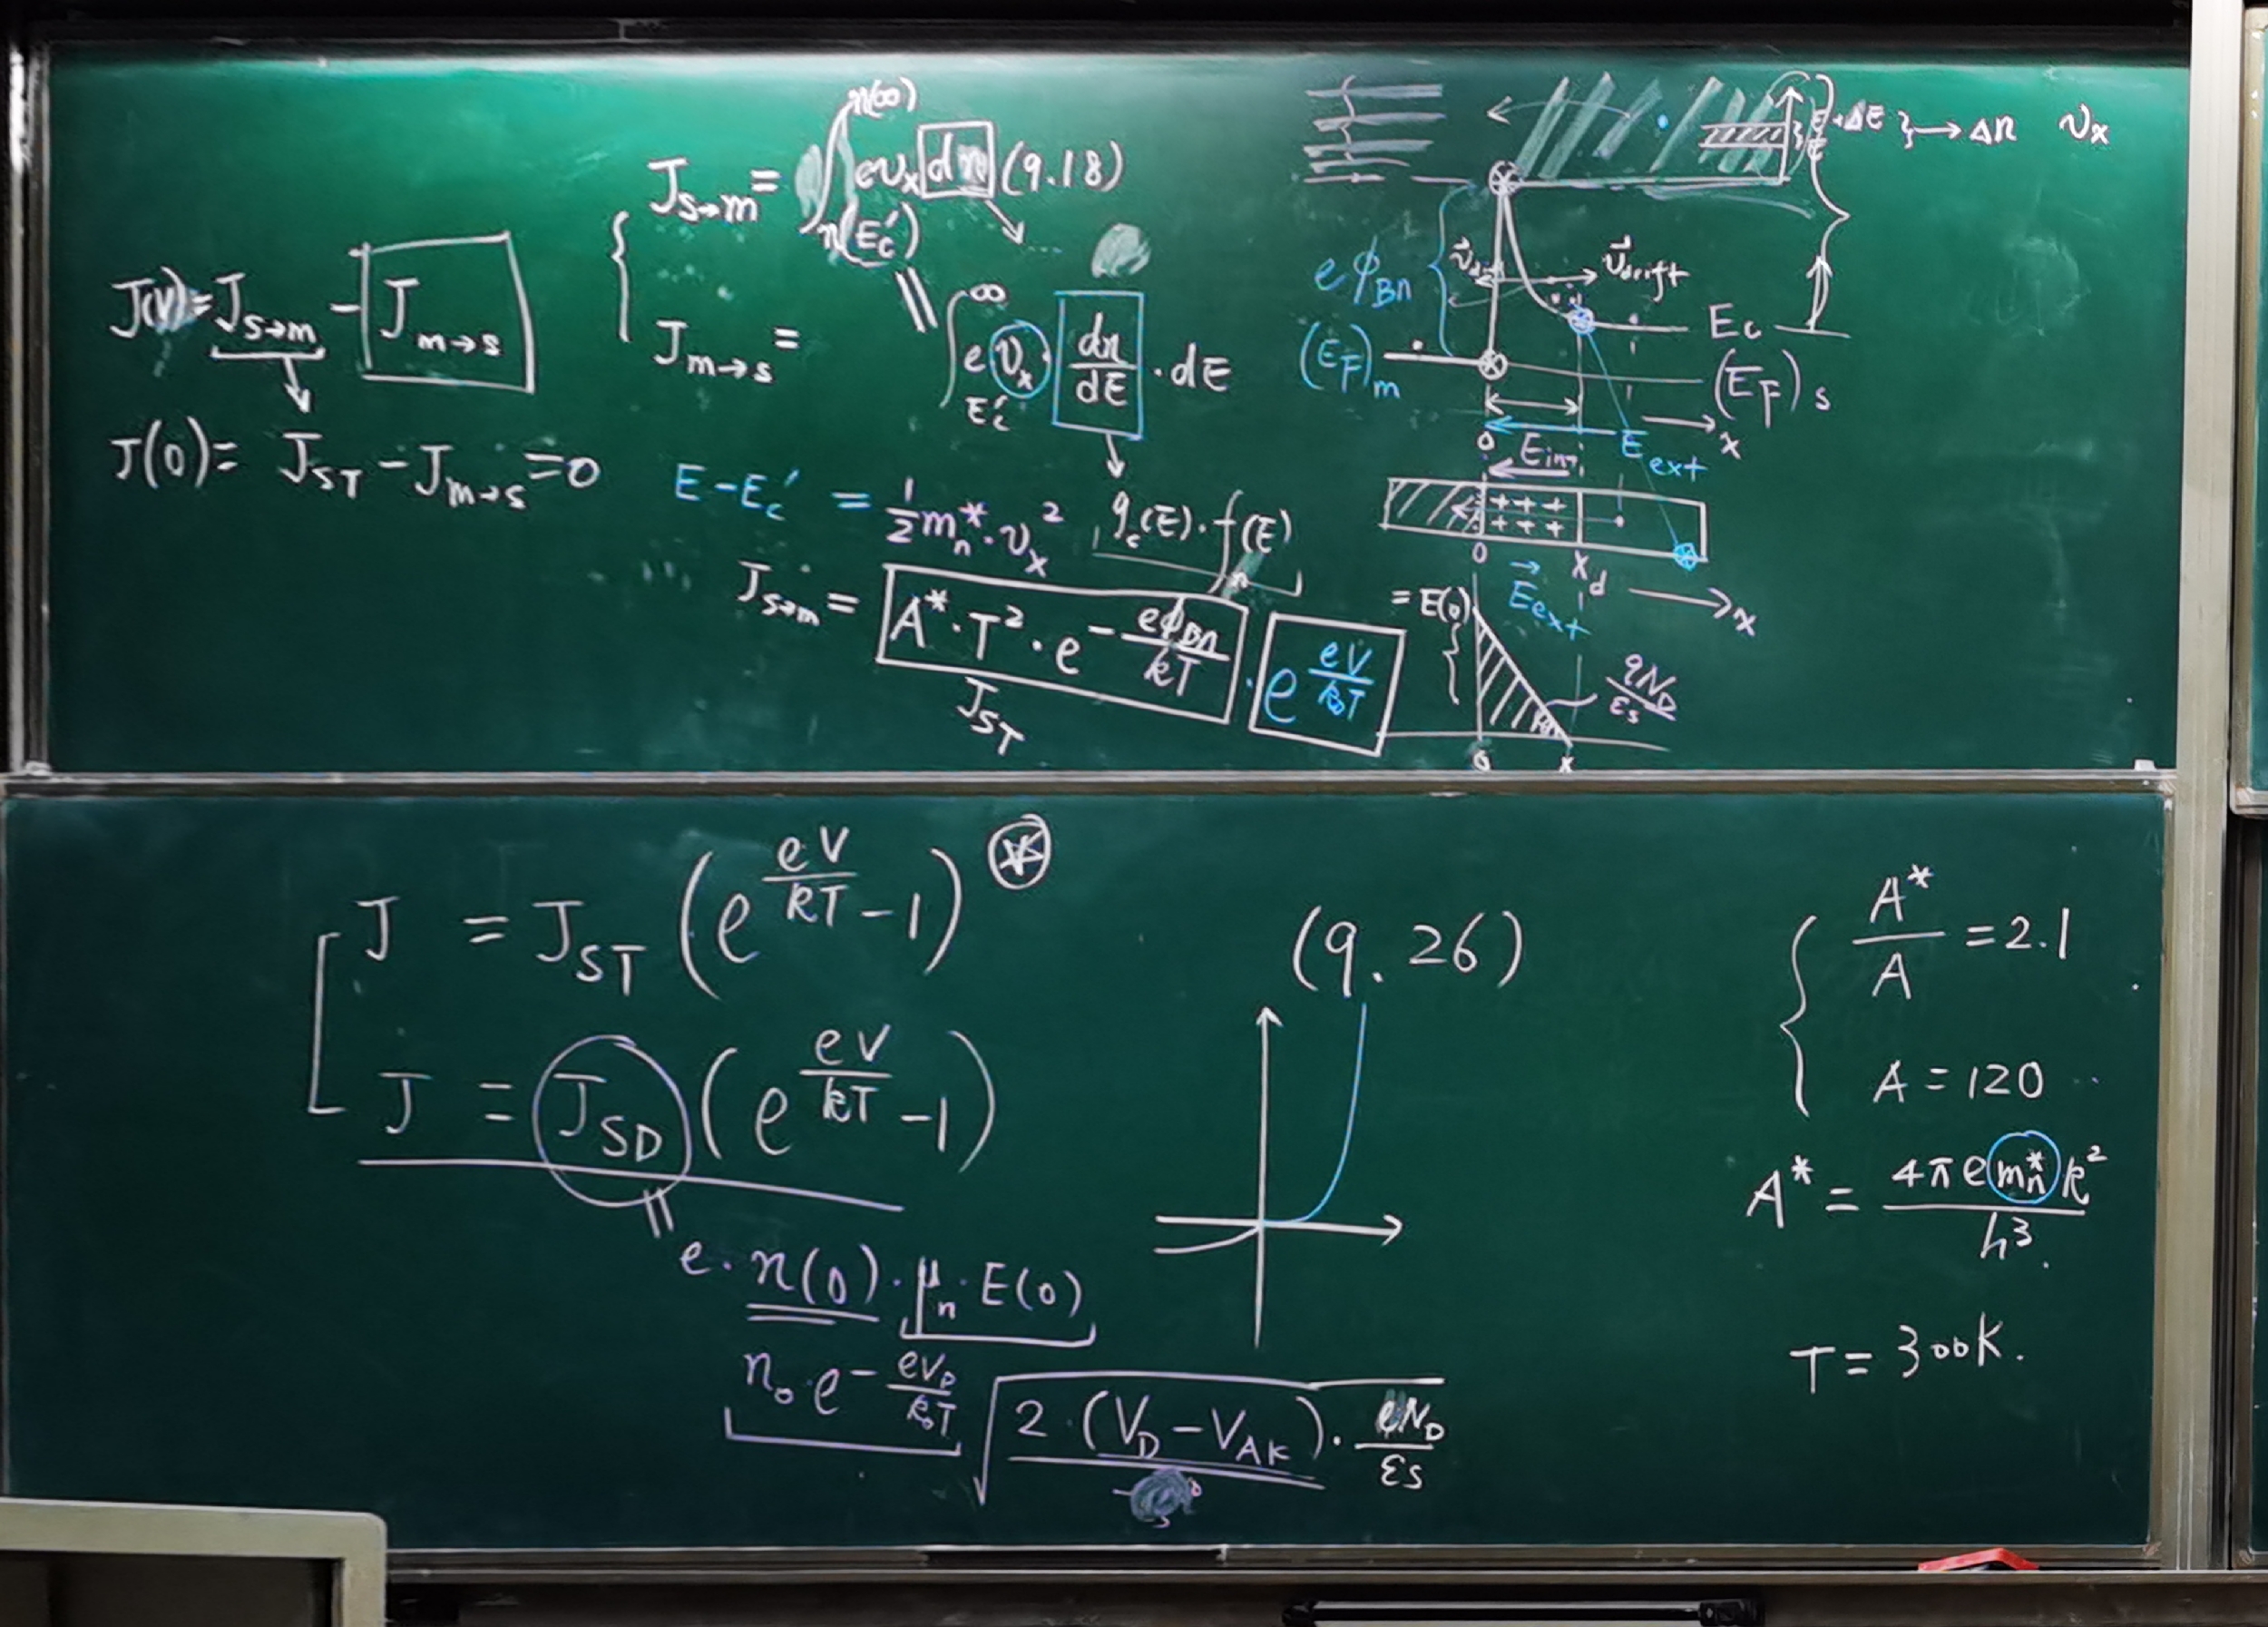 J(V) = J_{s→m} - J_{m→s}
J(0) = J_{ST} - J_{m→s} = 0
J_{s→m} = ∫_{n(E_c')}^{n(∞)} e v_x dn (9.18)
∥ ∫_{E_c'}^{∞} e v_x · dn/dE · dE
J_{m→s} =
E - E_c' = 1/2 m_n^* · v_x^2
g_c(E) · f_n(E)
J_{s→m} = A^* · T^2 · e^{-eϕ_{Bn}/kT} · e^{eV/k_0T}
J_{ST}
+ΔE } → Δn v_x
eϕ_{Bn}
v⃗_{drift}
E_c
(E_F)_m
(E_F)_s
0 x
E_{int} E_{ext}
+ + + +
+ + + +
0 x_d → x
E⃗_{ext}
= E(0)
qN_D/ε_s
0 x
J = J_{ST} (e^{eV/kT} - 1) ⊛
(9.26)
J = J_{SD} (e^{eV/kT} - 1)
∥
e · n(0) · μ_n · E(0)
n_0 e^{-eV_D/k_0T} √(2 · (V_D - V_{AK}) · eN_D/εs)
A^*/A = 2.1
A = 120
A^* = 4π e m_n^* k^2 / h^3
T = 300K.